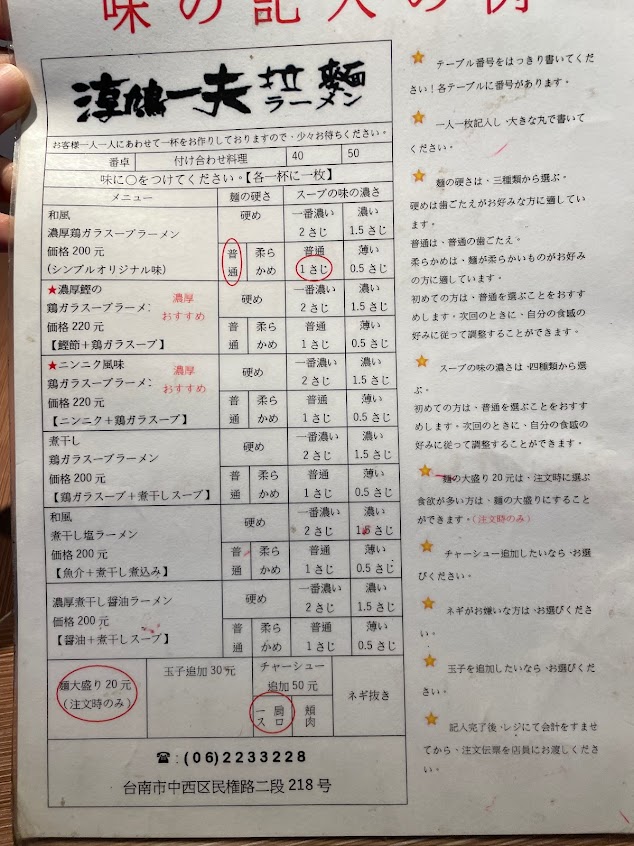 味の記入の例
淳鳩一夫 拉麵
ラーメン
お客様一人一人にあわせて一杯をお作りしておりますので、少々お待ちください。
番卓 付け合わせ料理 40 50
味に〇をつけてください。【各一杯に一枚】
メニュー 麵の硬さ スープの味の濃さ
和風
濃厚鶏ガラスープラーメン
価格 200 元
(シンプルオリジナル味)
硬め 一番濃い 濃い
2 さじ 1.5 さじ
普通 柔らかめ 普通 薄い
1 さじ 0.5 さじ
★濃厚鰹の
鶏ガラスープラーメン
価格 220 元
【鰹節+鶏ガラスープ】
濃厚
おすすめ
硬め 一番濃い 濃い
2 さじ 1.5 さじ
普通 柔らかめ 普通 薄い
1 さじ 0.5 さじ
★ニンニク風味
鶏ガラスープラーメン
価格 220 元
【ニンニク+鶏ガラスープ】
濃厚
おすすめ
硬め 一番濃い 濃い
2 さじ 1.5 さじ
普通 柔らかめ 普通 薄い
1 さじ 0.5 さじ
煮干し
鶏ガラスープラーメン
価格 200 元
【鶏ガラスープ+煮干しスープ】
硬め 一番濃い 濃い
2 さじ 1.5 さじ
普通 柔らかめ 普通 薄い
1 さじ 0.5 さじ
和風
煮干し塩ラーメン
価格 200 元
【魚介+煮干し煮込み】
硬め 一番濃い 濃い
2 さじ 1.5 さじ
普通 柔らかめ 普通 薄い
1 さじ 0.5 さじ
濃厚煮干し醤油ラーメン
価格 200 元
【醤油+煮干しスープ】
硬め 一番濃い 濃い
2 さじ 1.5 さじ
普通 柔らかめ 普通 薄い
1 さじ 0.5 さじ
麵大盛り 20 元
(注文時のみ)
玉子追加 30 元
チャーシュー
追加 50 元
一肩
スロ
頬
肉
ネギ抜き
☎:(06)2233228
台南市中西区民権路二段 218 号
テーブル番号をはっきり書いてくだ
さい!各テーブルに番号があります。
一人一枚記入し、大きな丸で書いて
ください。
麵の硬さは、三種類から選ぶ。
硬めは歯ごたえがお好みな方に適してい
ます。
普通は、普通の歯ごたえ。
柔らかめは、麵が柔らかいものがお好み
の方に適しています。
初めての方は、普通を選ぶことをおすす
めします。次回のときに、自分の食感の
好みに従って調整することができます。
スープの味の濃さは、四種類から選
ぶ。
初めての方は、普通を選ぶことをおすす
めします。次回のときに、自分の食感の
好みに従って調整することができます。
麵の大盛り 20 元は、注文時に選ぶ
食欲が多い方は、麵の大盛りにすること
ができます。(注文時のみ)
チャーシュー追加したいなら、お選
びください。
ネギがお嫌いな方は、お選びくださ
い。
玉子を追加したいなら、お選びくだ
さい。
記入完了後、レジにて会計をすませ
てから、注文伝票を店員にお渡しくださ
い。